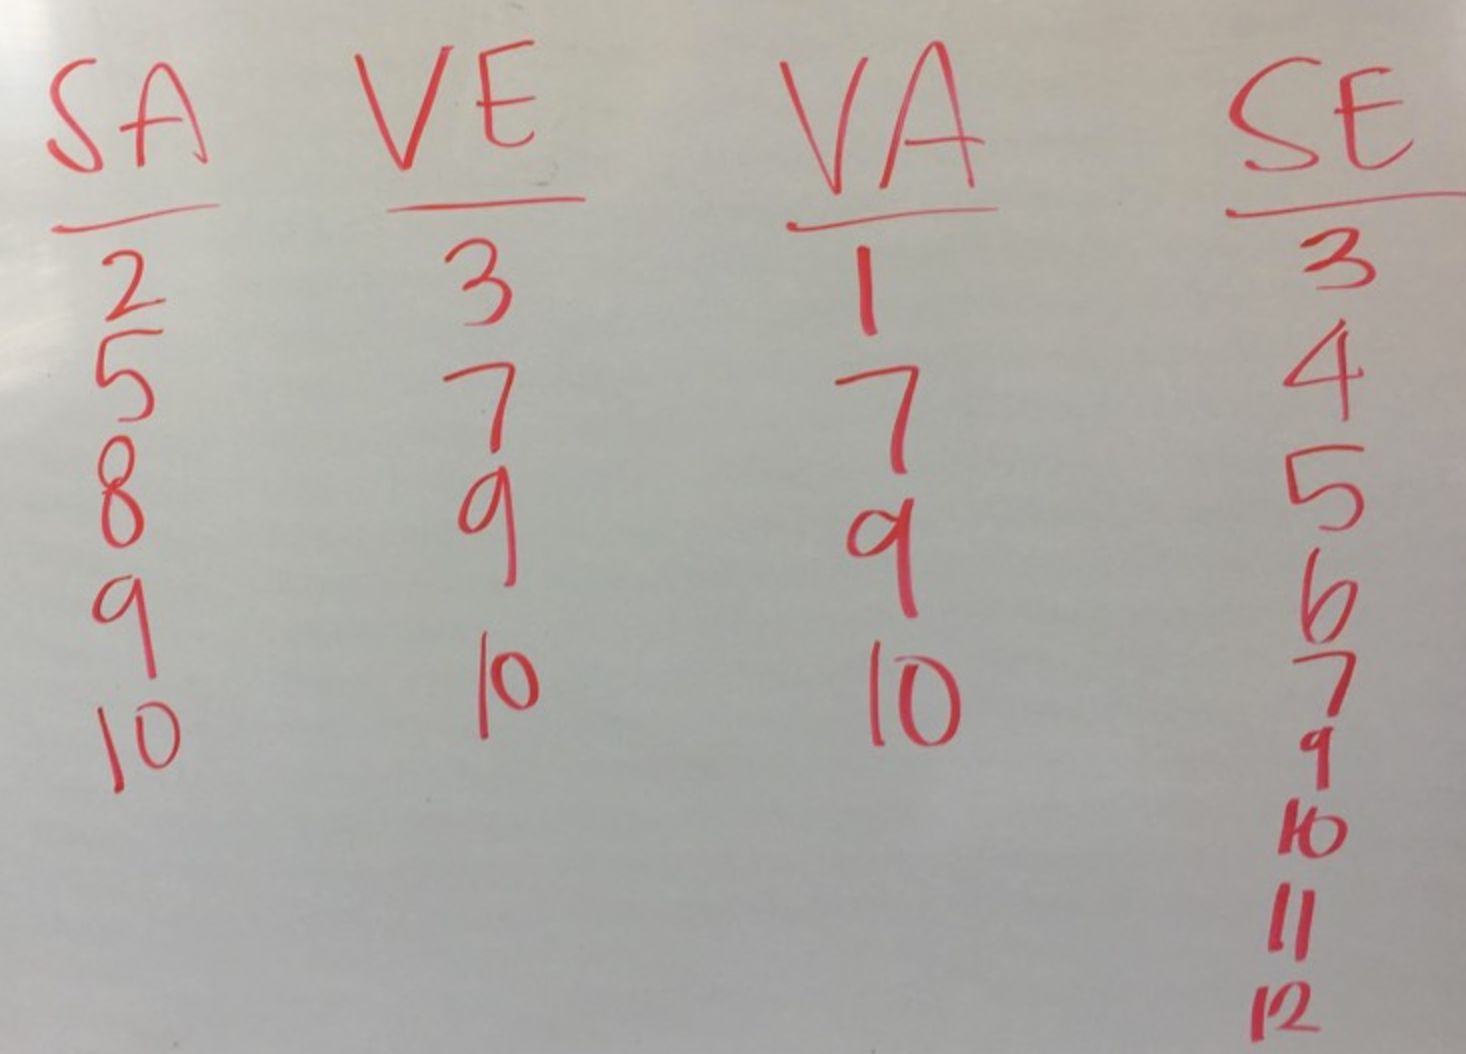 SA VE VA SE
2 3 1 3
5 7 7 4
8 9 9 5
9 10 10 6
10 7
9
10
11
12